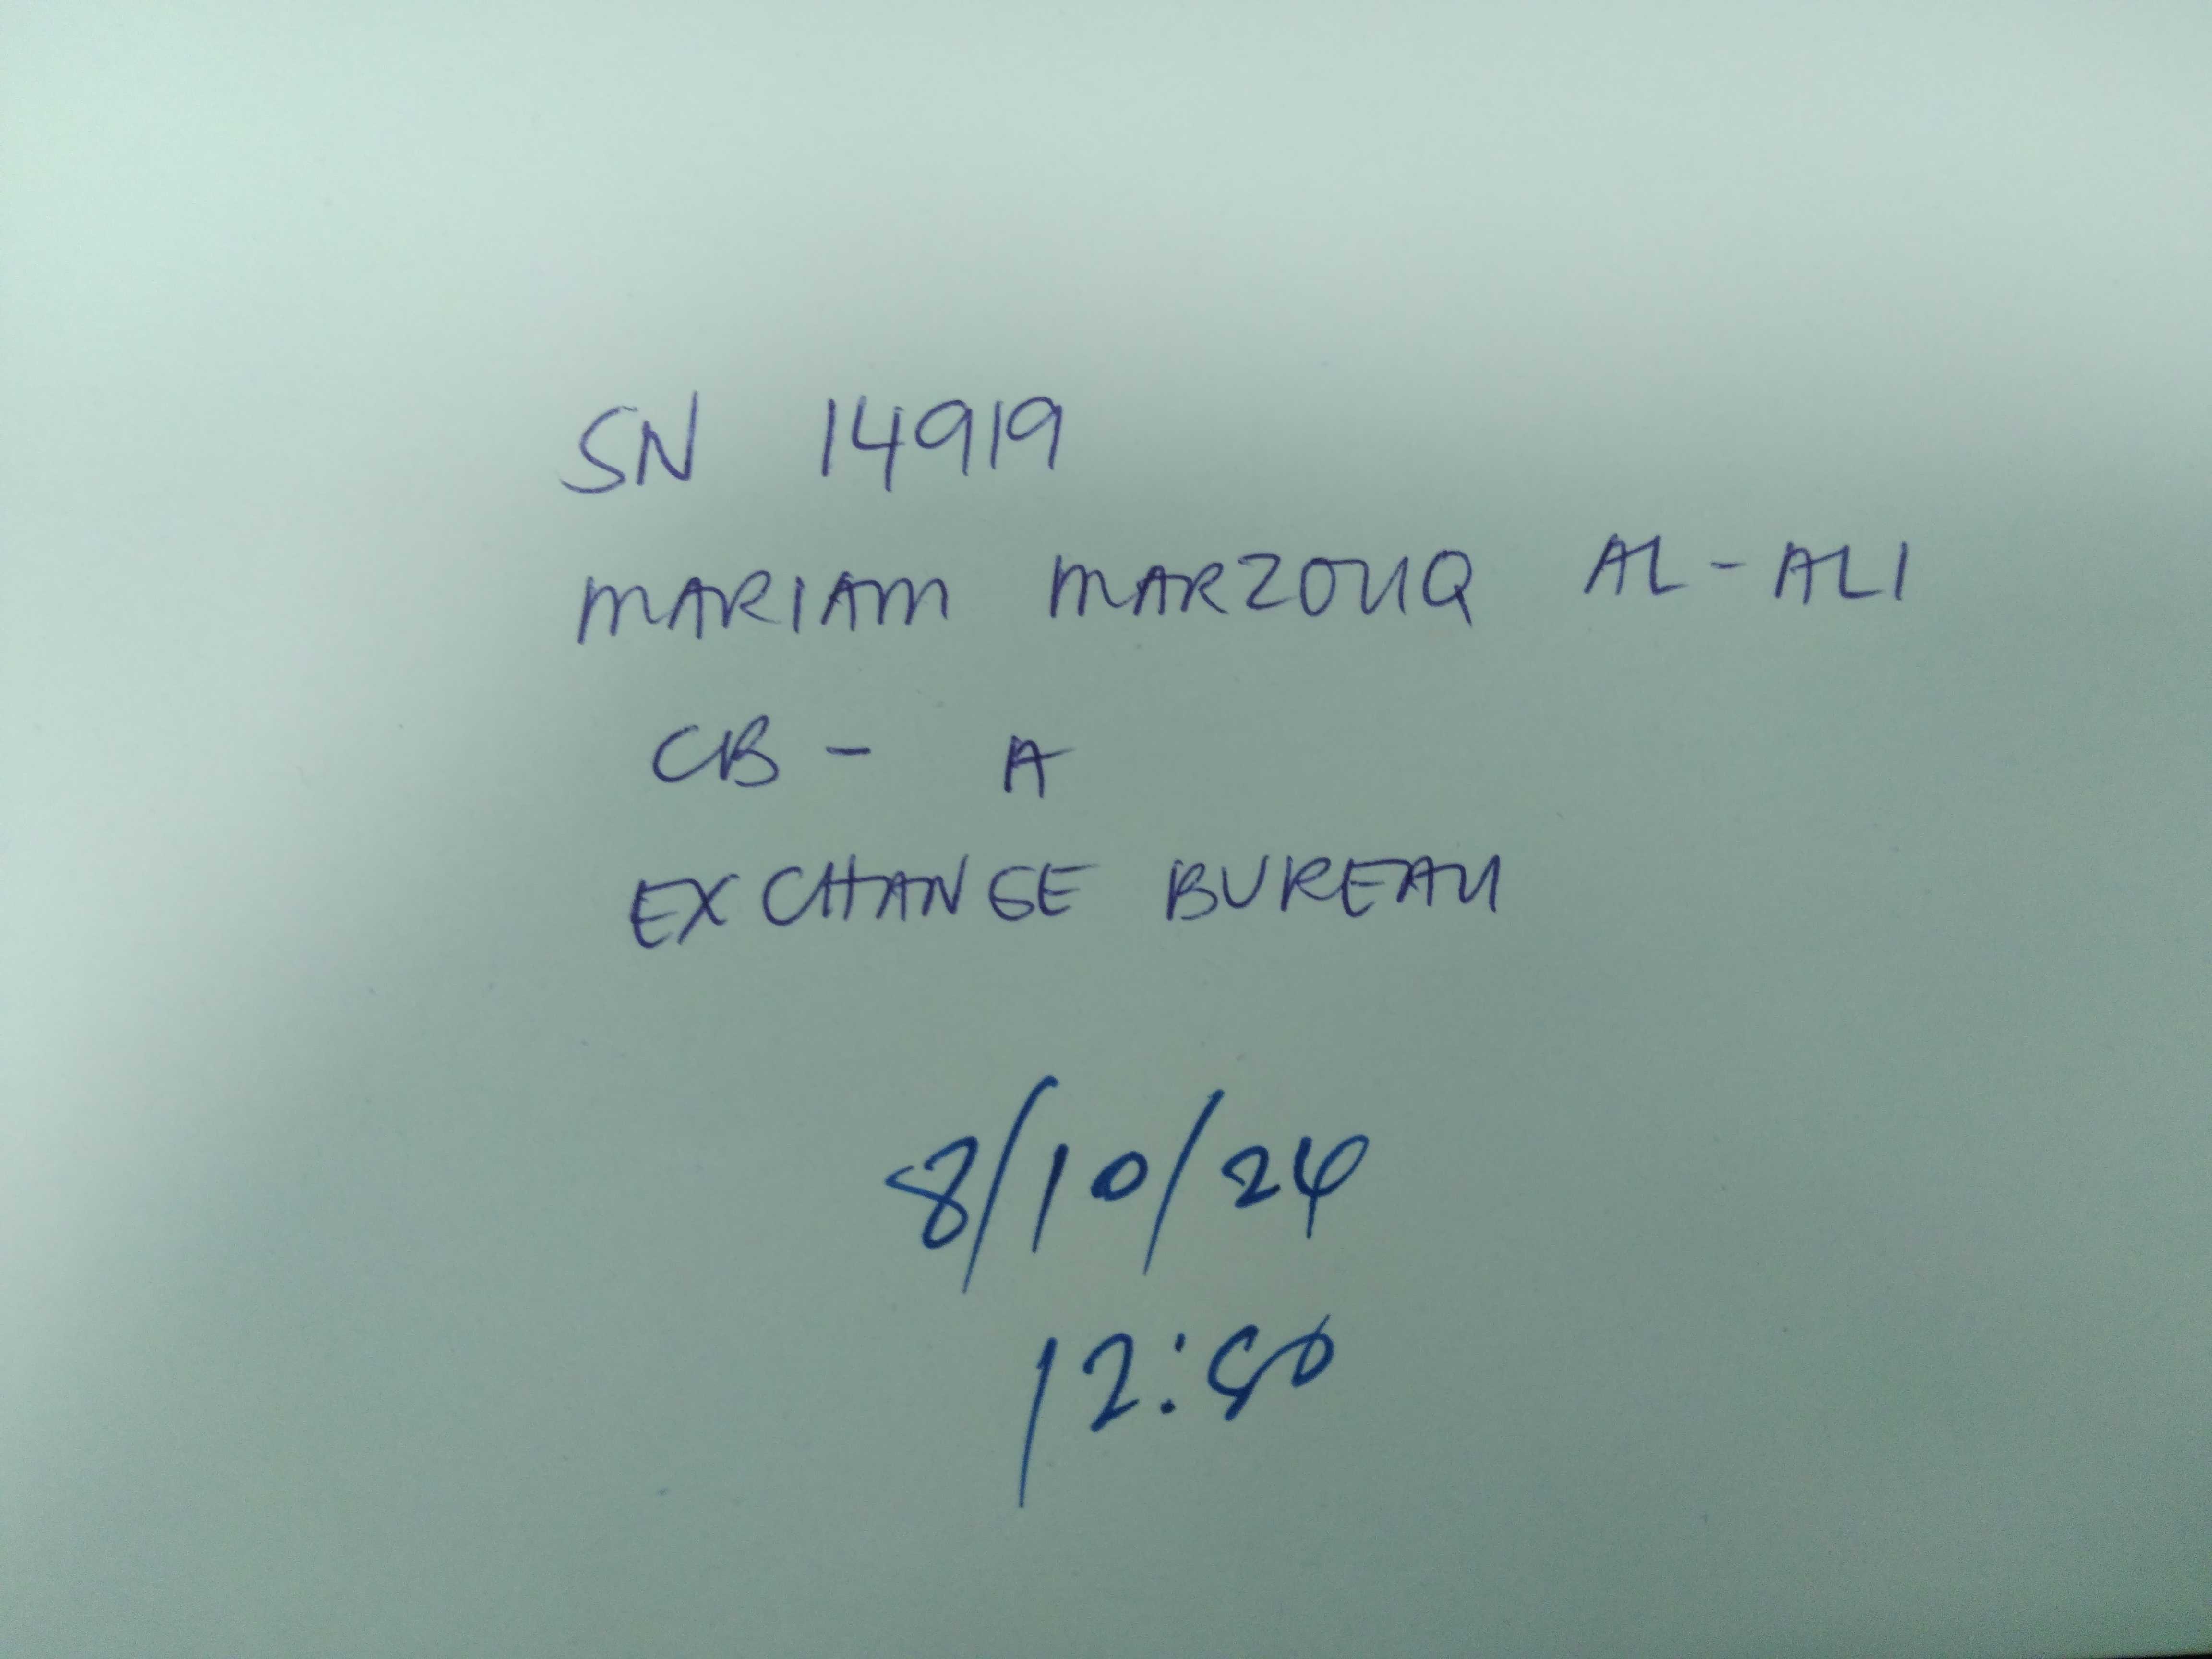 SN 14919
MARIAM MARZOUQ AL-ALI
CB - A
EXCHANGE BUREAU
8/10/24
12:50